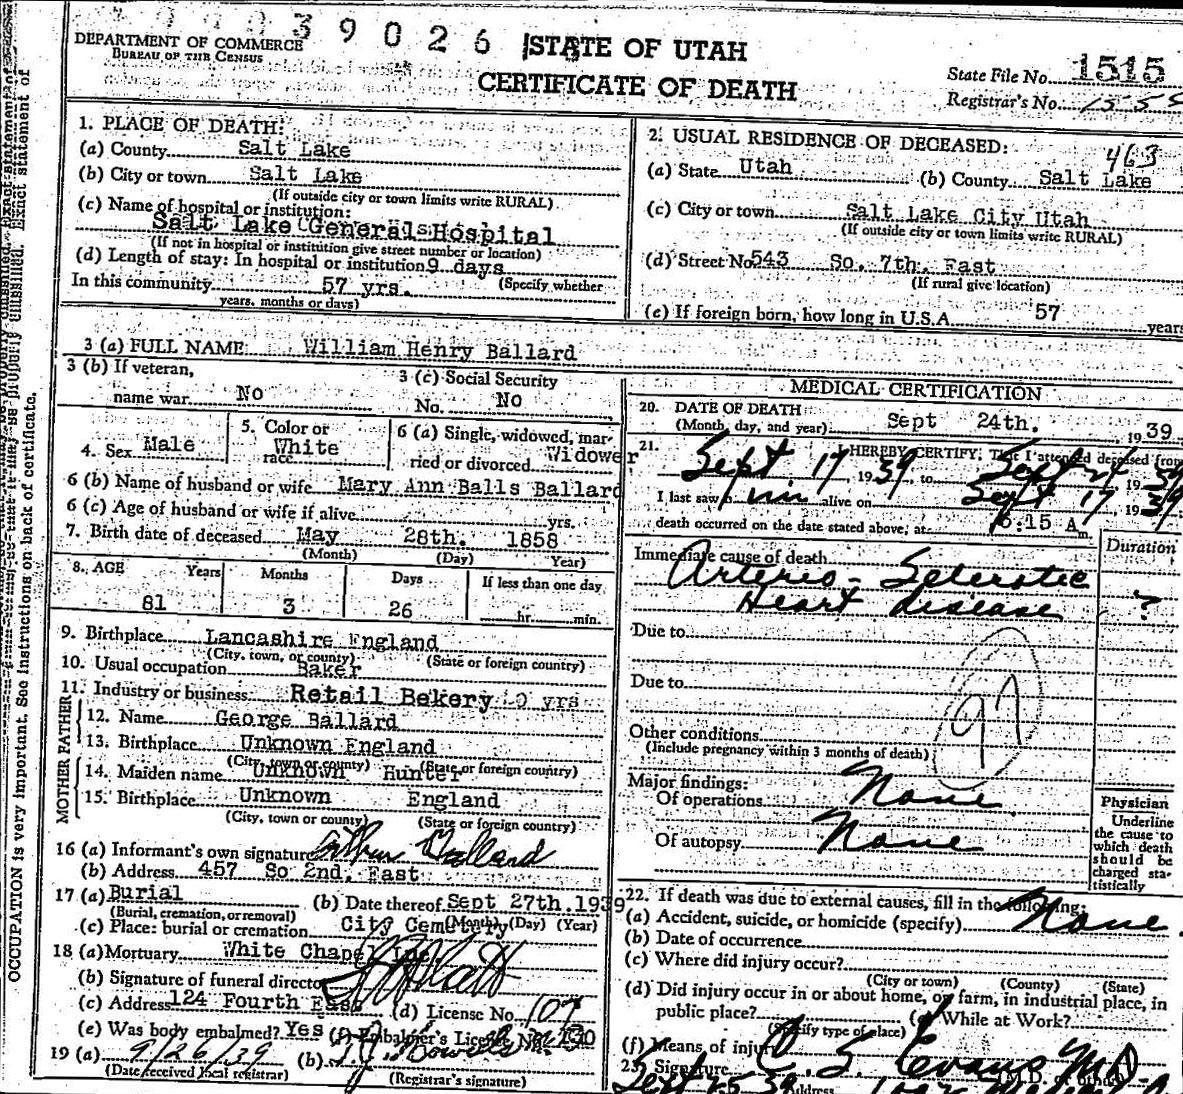 39026
DEPARTMENT OF COMMERCE
BUREAU OF THE CENSUS
STATE OF UTAH
CERTIFICATE OF DEATH
State File No. 1515
Registrar's No. 1555
1. PLACE OF DEATH:
(a) County Salt Lake
(b) City or town Salt Lake
(If outside city or town limits write RURAL)
(c) Name of hospital or institution:
Salt Lake General Hospital
(If not in hospital or institution give street number or location)
(d) Length of stay: In hospital or institution 9 days
In this community 57 yrs. (Specify whether
years, months or days)
2. USUAL RESIDENCE OF DECEASED:
463
(a) State Utah (b) County Salt Lake
(c) City or town Salt Lake City Utah
(If outside city or town limits write RURAL)
(d) Street No. 543 So. 7th. East
(If rural give location)
(e) If foreign born, how long in U.S.A. 57 years
3 (a) FULL NAME William Henry Ballard
3 (b) If veteran, name war No
3 (c) Social Security No. No
4. Sex Male
5. Color or race White
6 (a) Single, widowed, married or divorced Widower
6 (b) Name of husband or wife Mary Ann Balls Ballard
6 (c) Age of husband or wife if alive yrs.
7. Birth date of deceased May 28th. 1858
(Month) (Day) Year)
8. AGE Years Months Days If less than one day
81 3 26 hr. min.
9. Birthplace Lancashire England
(City, town, or county) (State or foreign country)
10. Usual occupation Baker
11. Industry or business Retail Bekery 0 yrs
FATHER
12. Name George Ballard
13. Birthplace Unknown England
(City, town or county) (State or foreign country)
MOTHER
14. Maiden name Unknown Hunter
15. Birthplace Unknown England
(City, town or county) (State or foreign country)
16 (a) Informant's own signature Arthur Ballard
(b) Address 457 So 2nd. East
17 (a) Burial (b) Date thereof Sept 27th. 1939
(Burial, cremation, or removal) (Month) (Day) (Year)
(c) Place: burial or cremation City Cemetery
18 (a) Mortuary White Chapel Inc.
(b) Signature of funeral director
(c) Address 124 Fourth East (d) License No. 107
(e) Was body embalmed? Yes (f) Embalmer's License No. 130
19 (a) 9/26/39 (b)
(Date received local registrar) (Registrar's signature)
MEDICAL CERTIFICATION
20. DATE OF DEATH
(Month, day, and year) Sept 24th. 1939
21. I HEREBY CERTIFY, That I attended deceased from
Sept 17, 1939, to Sept 1939
I last saw him alive on Sept 17 1939
death occurred on the date stated above, at 6:15 A m.
Duration
Immediate cause of death
Arterio-Sclerotic
Heart disease ?
Due to
Due to
97
Other conditions
(Include pregnancy within 3 months of death)
Major findings:
Of operations None
Of autopsy None
Physician
Underline
the cause to
which death
should be
charged sta-
tistically
22. If death was due to external causes, fill in the following:
(a) Accident, suicide, or homicide (specify) None
(b) Date of occurrence
(c) Where did injury occur?
(City or town) (County) (State)
(d) Did injury occur in or about home, on farm, in industrial place, in
public place? (e) While at Work?
(Specify type of place)
(f) Means of injury
23. Signature C. S. Evans MD
(M.D. or other)
Sept 25 39 Address
OCCUPATION is very important. See instructions on back of certificate.
Exact statement of